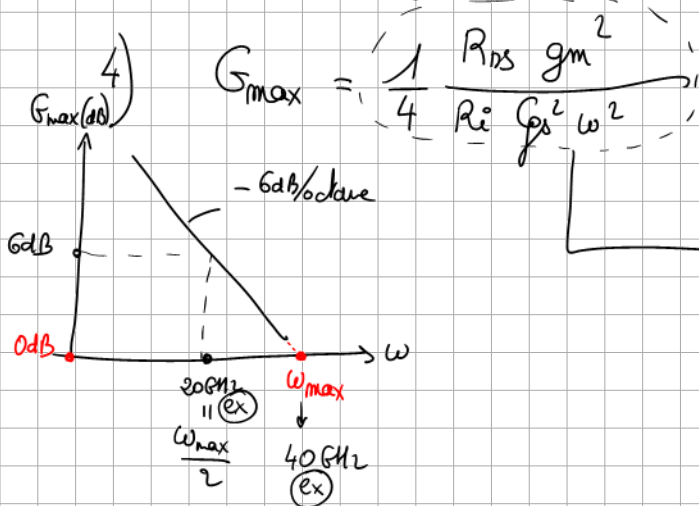 4)
G_max = 1/4 R_DS gm² / Ri C_GS² ω²
G_max(dB)
-6dB/octave
6dB
0dB
ω
20GHz
ω_max
= ex
ω_max/2
40GHz
ex